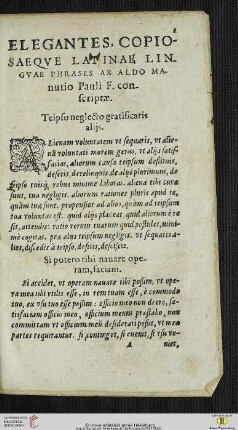 ELEGANTES, COPIO-
SAEQVE LATINAE LIN-
GVAE PHRASES AB ALDO MA-
nutio Pauli F. con-
scriptæ.
Teipso neglecto gratificaris
alijs.
Alienam voluntatem vt sequaris, vt alie-
næ voluntati morem geras, vt alijs satis-
facias, aliorum causa teipsum destituis,
deseris, derelinquis de alijs plurimum, de
teipso tuisq; rebus minime laboras. aliena tibi curæ
sunt, tua negligis. aliorum rationes pluris apud te,
quàm tuæ sunt. propensior ad alios, quàm ad teipsum
tua voluntas est. quid alijs placeat, quid aliorum è re
sit, attendis: ratio rerum tuarum quid postulet, mini-
mè cogitas. præ alijs teipsum negligis. vt sequaris a-
lios, discedis à teipso, desciscis.
Si potero tibi nauare ope-
ram, faciam.
Si accidet, vt operam nauare tibi possim, vt ope-
ra mea tibi vtilis esse, in rem tuam esse, è commodo
tuo, ex vsu tuo esse possit: officio meo non deero, sa-
tisfaciam officio meo, officium meum præstabo, non
committam vt officium meũ desiderari possit, vt meæ
partes requirantur. si continget, si eueniet, si vsu ve-
A niet,
© Universitätsbibliothek Heidelberg